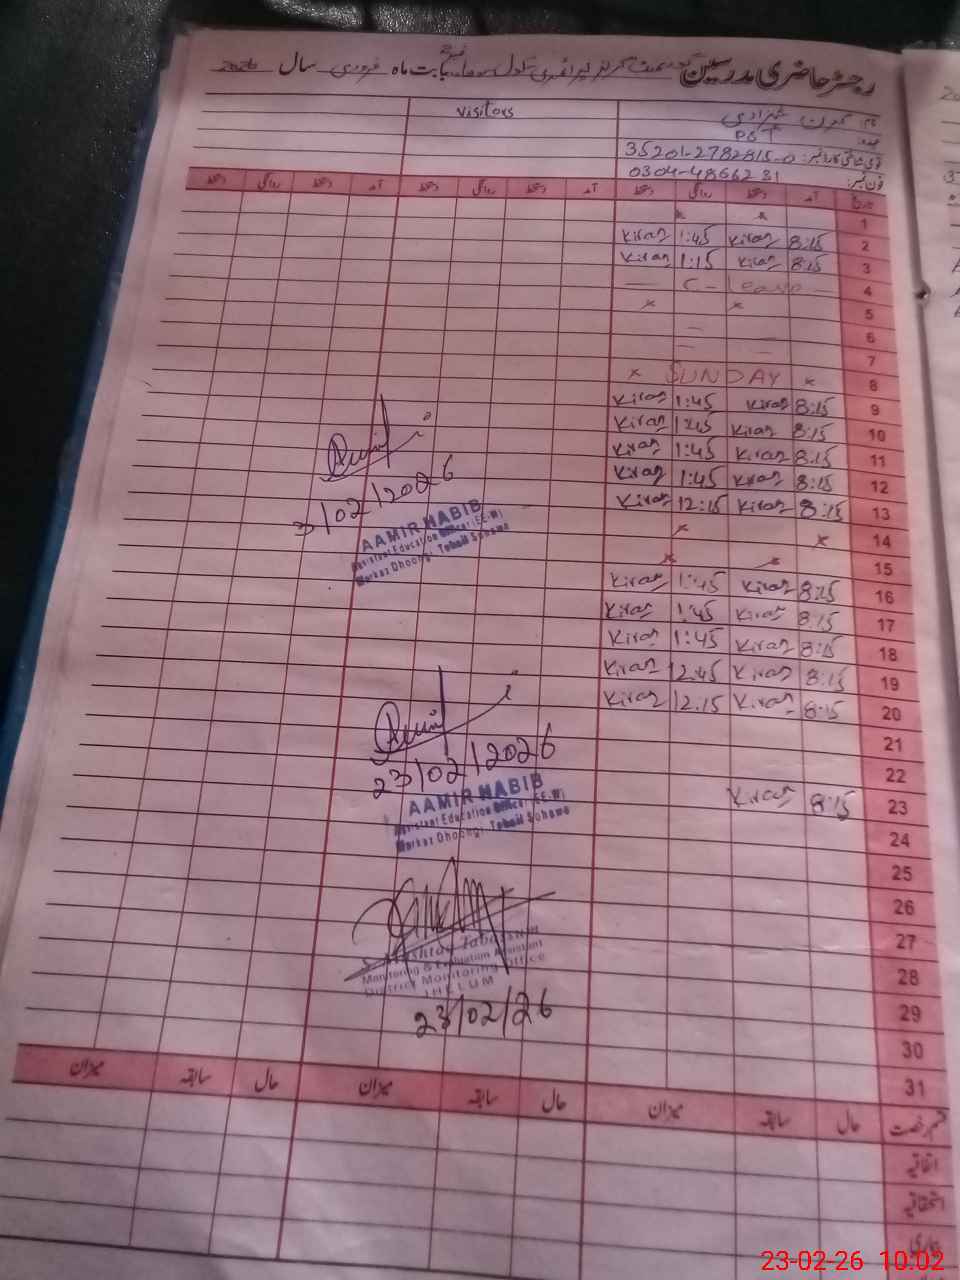 رجسٹر حاضری مدرسین گورنمنٹ گرلز پرائمری سکول بابت ماہ فروری سال 2026
نام: کرن شہزادی
Visitors
عہدہ: PST
قومی شناختی کارڈ نمبر: 35201-2782815-0
فون نمبر: 0304-4866231
تاریخ آمد دستخط روانگی دستخط آمد دستخط روانگی دستخط آمد دستخط روانگی دستخط
1 × ×
2 8:15 Kiran 1:45 Kiran
3 8:15 Kiran 1:15 Kiran
4 — C - Leave
5 × ×
6 —
7 — —
8 × SUNDAY ×
9 8:15 Kiran 1:45 Kiran
10 8:15 Kiran 1:45 Kiran
11 8:15 Kiran 1:45 Kiran
12 8:15 Kiran 1:45 Kiran
13 8:15 Kiran 12:15 Kiran
14 × ×
15 × ×
16 8:15 Kiran 1:45 Kiran
17 8:15 Kiran 1:45 Kiran
18 8:15 Kiran 1:45 Kiran
19 8:15 Kiran 12:45 Kiran
20 8:15 Kiran 12:15 Kiran
21
22
23 8:15 Kiran
24
25
26
27
28
29
30
31
3/02/2026
AAMIR HABIB
Assistant Education Officer (EE-W)
Markaz Dhoongi Tehsil Sohawa
23/02/2026
AAMIR HABIB
Assistant Education Officer (EE-W)
Markaz Dhoongi Tehsil Sohawa
Monitoring & Evaluation Assistant
District Monitoring Office
JHELUM
23/02/26
قسم رخصت حال سابقہ میزان حال سابقہ میزان حال سابقہ میزان
اتفاقیہ
استحقاقیہ
بیماری
23-02-26 10:02